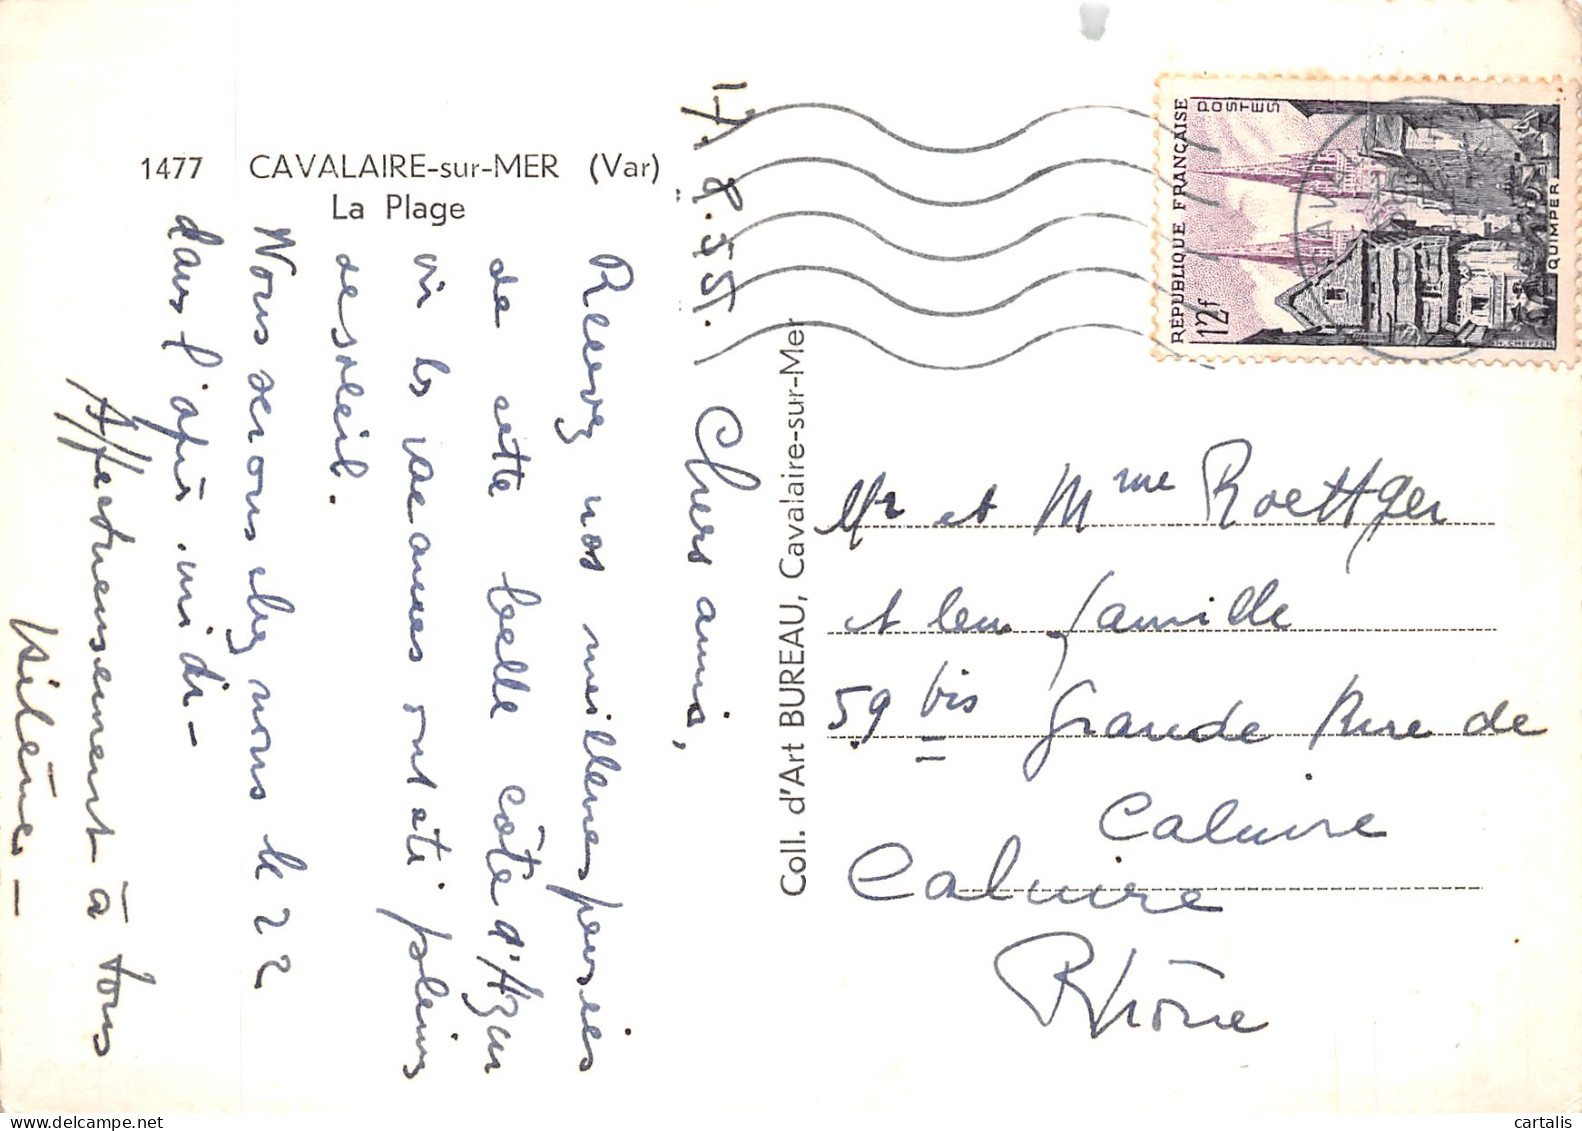 1477 CAVALAIRE-sur-MER (Var)
La Plage
17. 8. 55.
Chers amis,
Recevez nos meilleures pensées
de cette belle côte d'Azur
où les vacances ont été pleines
de soleil.
Nous serons chez nous le 22
dans l'après midi -
Affectueusement à tous
Coll. d'Art BUREAU, Cavalaire-sur-Mer
RÉPUBLIQUE FRANÇAISE
POSTES
12f
QUIMPER
H. CHEFFER
Mr et Mme Roettger
et leur famille
59 bis Grande Rue de
Caluire
Caluire
Rhône
cartalis